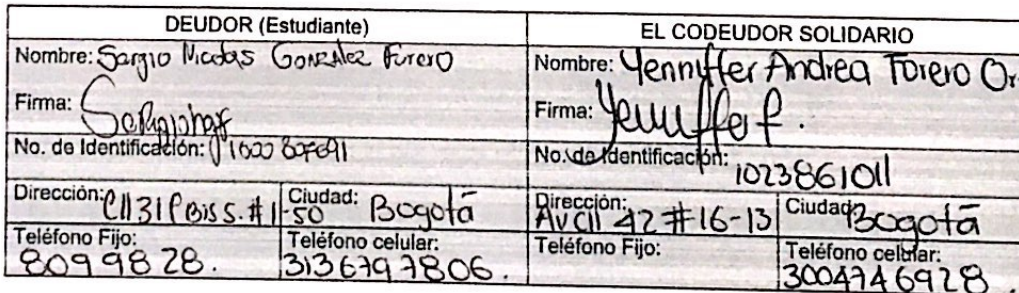 DEUDOR (Estudiante)
EL CODEUDOR SOLIDARIO
Nombre: Sergio Nicolas González Forero
Nombre: Yennyffer Andrea Forero Or
Firma:
Firma: Yennyffer f.
No. de Identificación:
No. de Identificación: 1023861011
Dirección: Cll 31 P Bis S. # 1-50
Ciudad: Bogotá
Dirección: Av Cll 42 # 16-13
Ciudad: Bogotá
Teléfono Fijo: 8099828.
Teléfono celular: 3136797806.
Teléfono Fijo:
Teléfono celular: 3004746928.